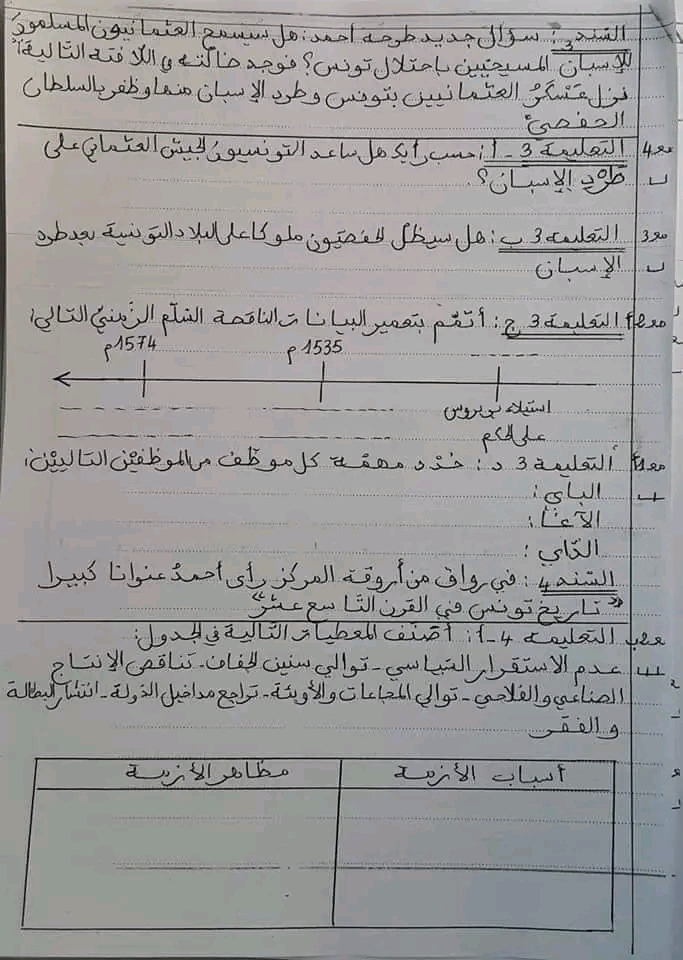 السّند 3: سؤال جديد طرحه أحمد: هل سيسمح العثمانيون المسلمون
للإسبان المسيحيّين باحتلال تونس؟ فوجد ضالّته في اللّافتة التّالية:
"نزل عَسْكَرُ العثمانيين بتونس وطرد الإسبان منها وظفر بالسلطان
الحفصيّ"
مع4 التعليمة 3-أ: حسب رأيك هل ساعد التونسيون الجيش العثماني على
طرد الإسبان؟.
مع3 التعليمة 3 ب: هل سيظلّ الحفصيّون ملوكا على البلاد التونسية بعد طرد
الإسبان
التعليمة 3 ج: أتمّم بتعمير البيانات الناقصة السّلّم الزّمنيّ التالي:
1574م 1535م
استيلاء بربروس
على الحكم
التعليمة 3 د: حدّد مهمّة كلّ موظّف من الموظّفين التاليين:
الباي:
الآغا:
الدّاي:
السّند 4: في رواق من أروقة المركز رأى أحمدُ عنوانا كبيرا
«تاريخ تونس في القرن التّاسع عشر»
التعليمة 4-1: أصنّف المعطيات التالية في الجدول:
عدم الاستقرار السّياسي - توالي سنين الجفاف - تناقص الإنتاج
الصناعي والفلاحي - توالي المجاعات والأوبئة - تراجع مداخيل الدّولة - انتشار البطالة
والفقر
أسباب الأزمة مظاهر الأزمة